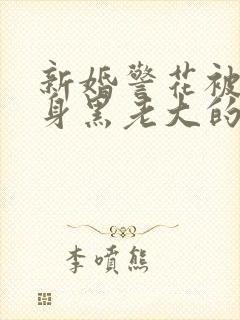 新婚警花被
身黑老大的
李喷熊